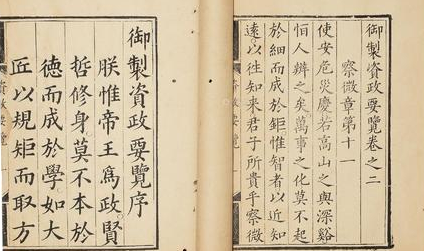 御製資政要覽卷之二
察微章第十一
使安危災慶若高山之與深谿
恒人辨之矣萬事之化莫不起
於細而成於鉅惟智者以近知
遠以往知來君子所貴乎察微
御製資政要覽序
朕惟帝王爲政賢
哲修身莫不本於
德而成於學如大
匠以規矩而取方